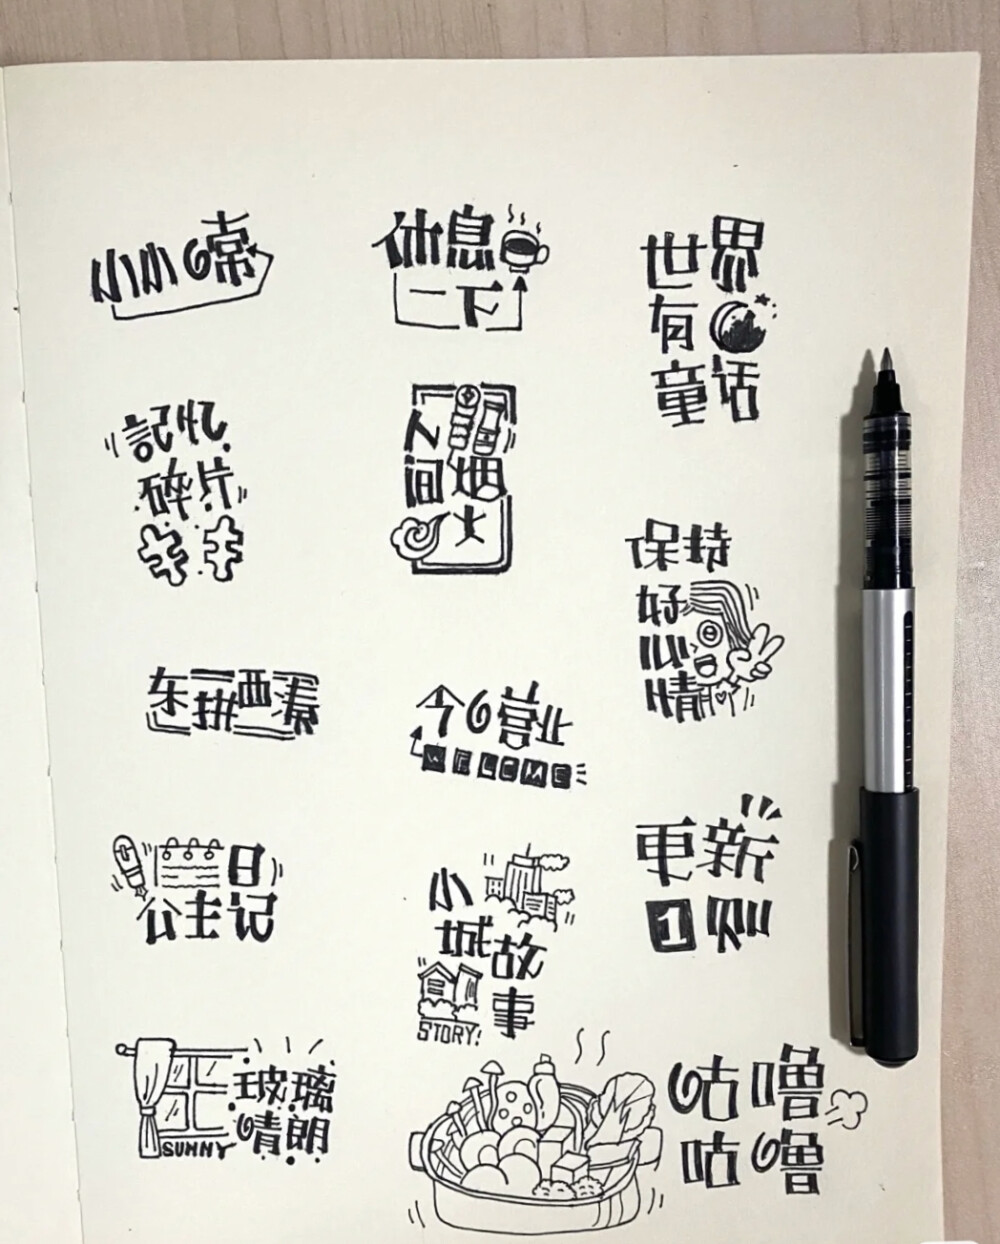 小小日常
休息
一下
世界
有
童话
記忆
碎片
人
间烟
火
保持
好
心
情
东拼西凑
今日营业
WELCOME
日
公主记
小
城故
事
STORY!
更新
1则
玻璃
晴朗
SUNNY
咕噜
咕噜